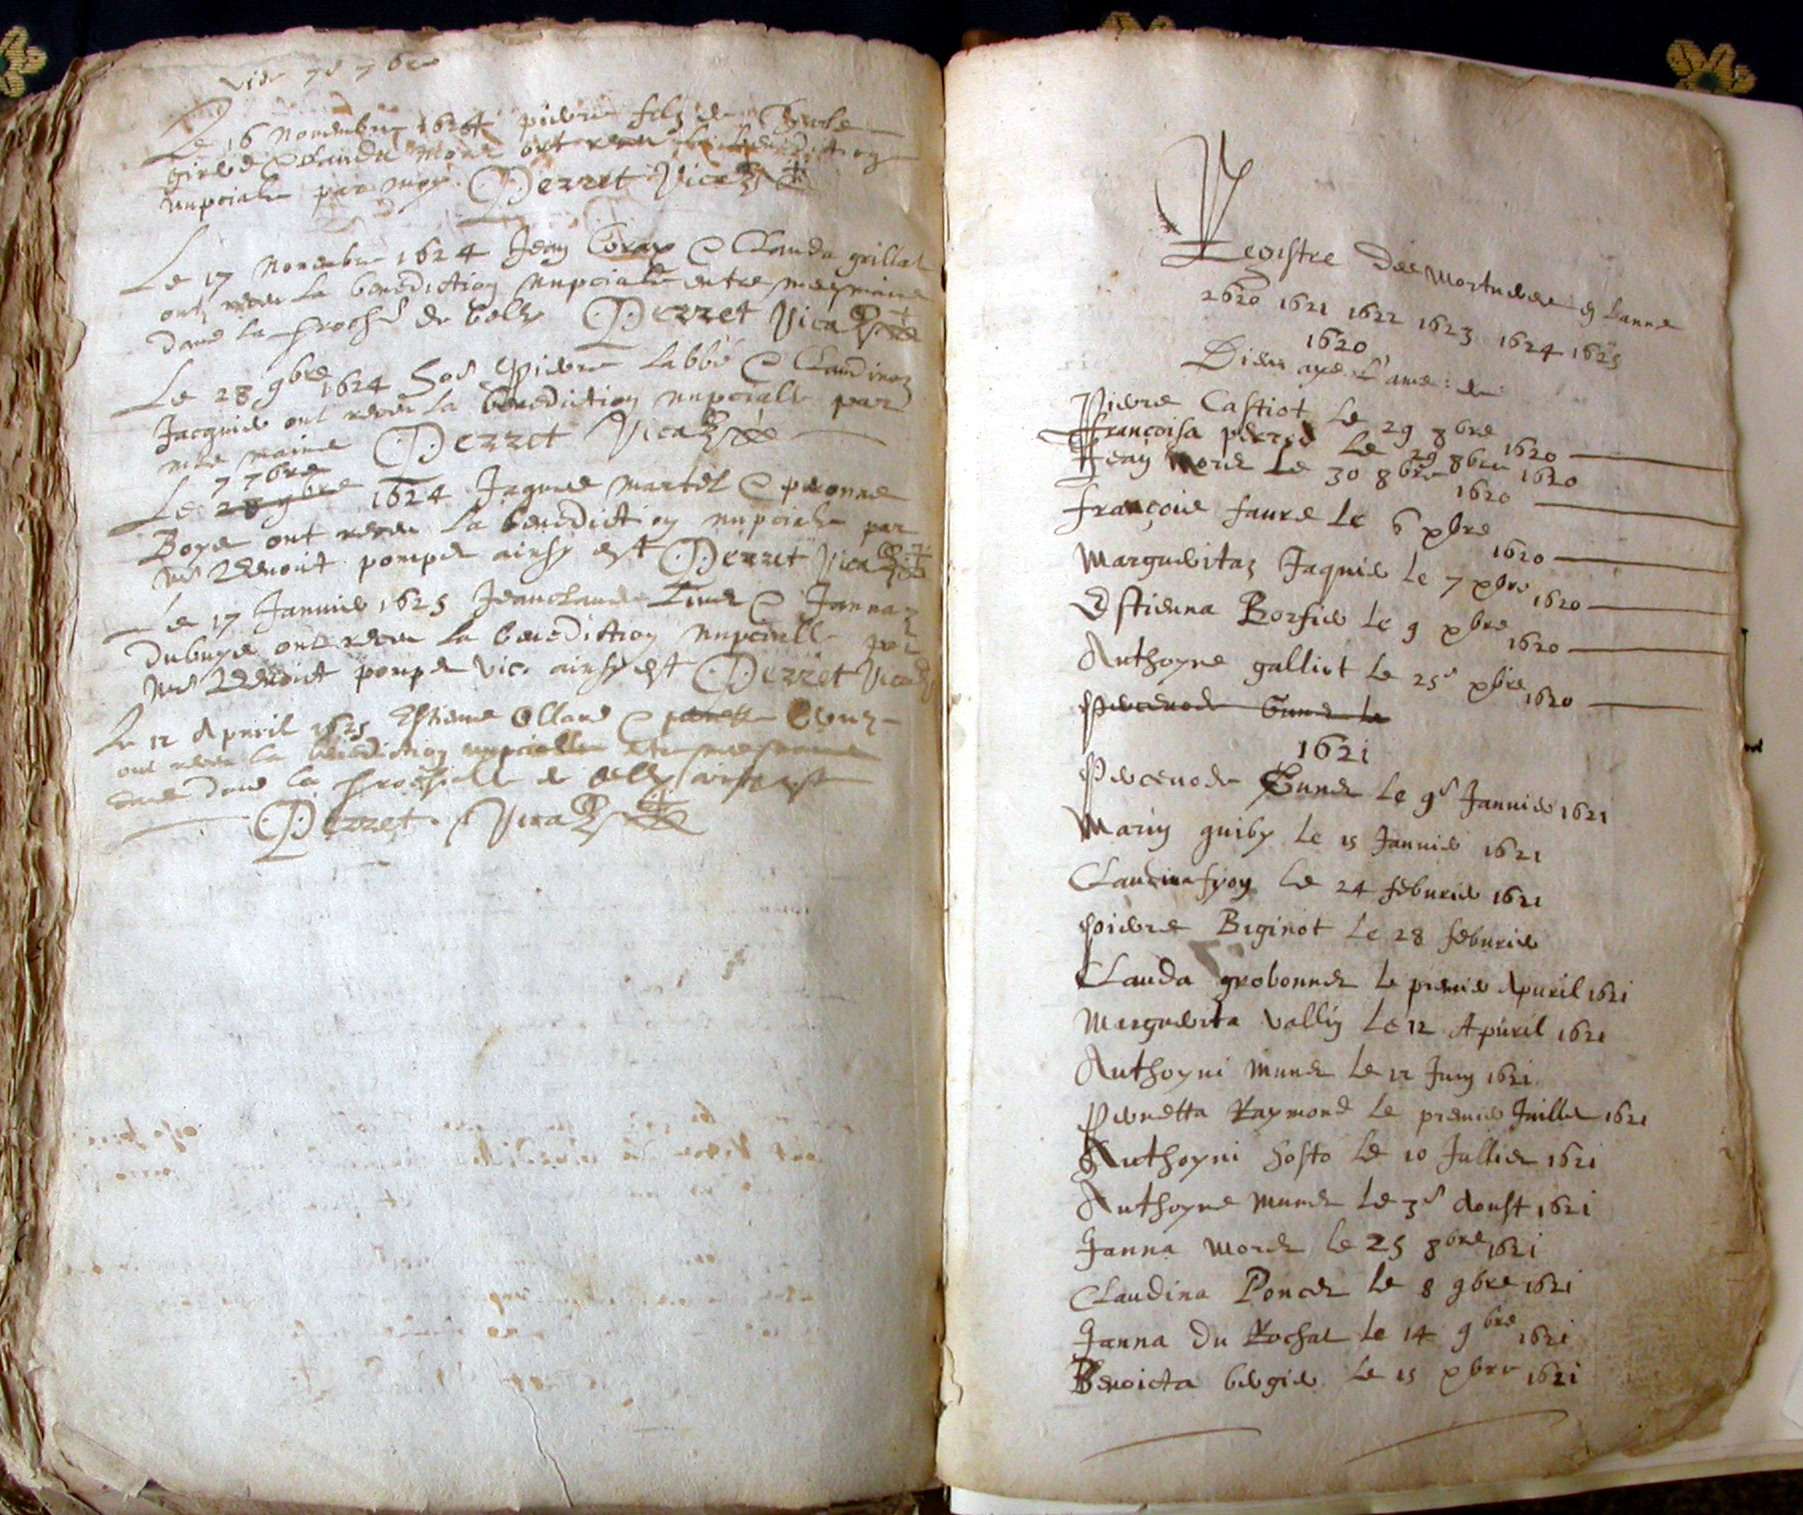 Le 16 Novembre 1624 pierre filz de
ont receu la benediction
nupciale par moy Perret Vicaire
Le 17 Novembre 1624 Jean Corax & Clauda grillat
ont receu la benediction nupciale entre mes mains
dans la de Perret Vicaire
Le 28 9bre 1624 pierre Labbé & Claudine
Jacquier ont receu la benediction nupciale par
mains Perret Vicaire
7 7bre
Le 28 9bre 1624 Jaques martel & peronne
Boye ont receu la benediction nupciale par
Mre Benoict pompe ainsy est Perret Vicaire
Le 17 Janvier 1625 Jean Claude & Janna
Dubuye ont receu la benediction nupciale par
Mre Benoict pompe vic. ainsy est Perret Vicaire
Le 12 Apvril 1625 Estienne Olland &
ont receu la benediction nupcialle
dans la de ainsy est
Perret Vicaire
Registre Des Mortuaires en Lanne
1620 1621 1622 1623 1624 1625
1620
Dieu aye L'ame de
Pierre Castiot Le 29 8bre 1620
françoisa Le 29 8bre 1620
Jean Morel Le 30 8bre 1620
françoise faure Le 6 xbre 1620
Margueritaz Jaquier Le 7 xbre 1620
Estienna Borfier Le 9 xbre 1620
Anthoyne galliot Le 25e xbre 1620
Le
1621
Le 9e Janvier 1621
Marin guiby Le 15 Janvier 1621
Claudina fyon Le 24 feburier 1621
pierre Biginot Le 28 feburier
Clauda grobonnet Le premier Apuril 1621
Marguerita Vallin Le 12 Apuril 1621
Anthoyni Munet Le 12 Juin 1621
Pernetta Raymond Le premier Juillet 1621
Anthoyni hosto Le 10 Jullier 1621
Anthoyne Munet Le 3e Aoust 1621
Janna Morel Le 25 8bre 1621
Claudina Poncet Le 8 9bre 1621
Janna Du Rochat Le 14 9bre 1621
Benoicta bergier Le 15 xbre 1621